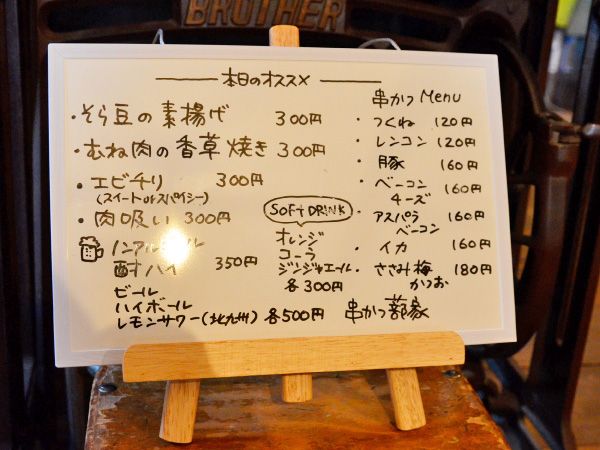 BROTHER
本日のオススメ
・そら豆の素揚げ 300円
・むね肉の香草焼き 300円
・エビチリ 300円
(スイートorスパイシー)
・肉吸い 300円
ノンアル
酎ハイ 350円
ビール
ハイボール
レモンサワー(北九州) 各500円
SOFT DRINK
オレンジ
コーラ
ジンジャエール
各300円
串かつ Menu
・つくね 120円
・レンコン 120円
・豚 160円
・ベーコン
チーズ 160円
・アスパラ
ベーコン 160円
・イカ 160円
・ささみ梅
かつお 180円
串かつ